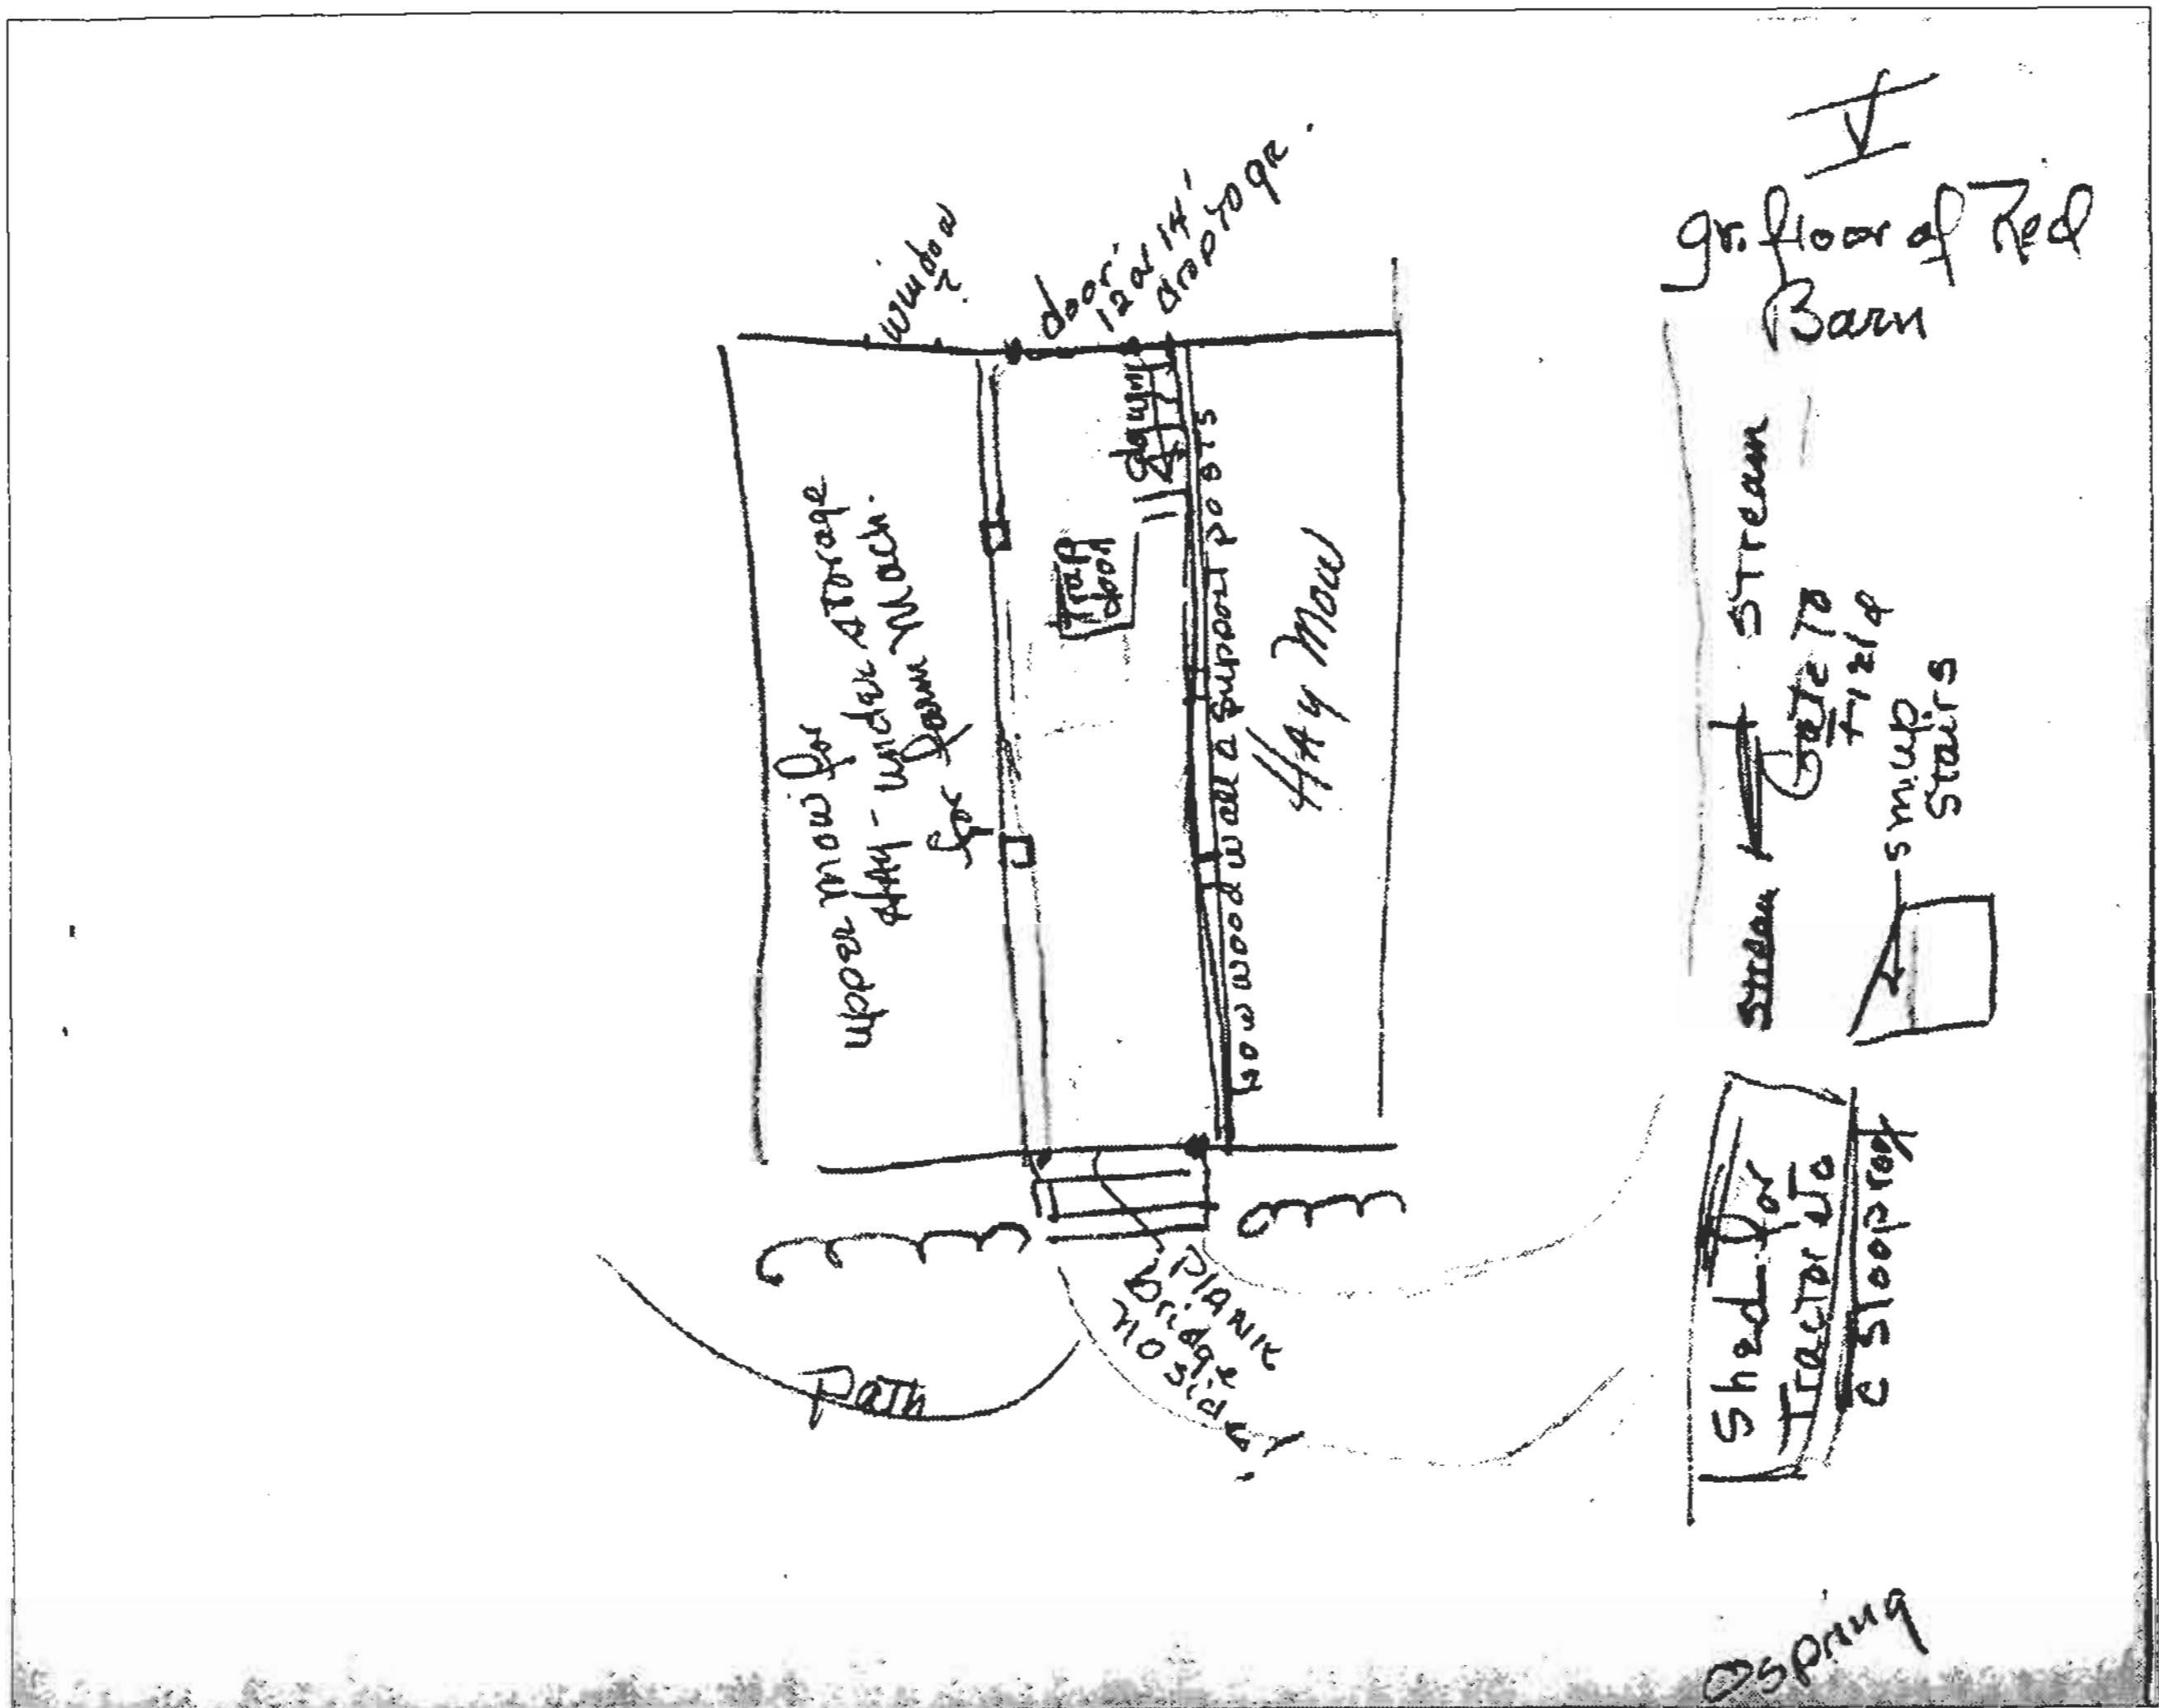 V
gr. floor of Red
Barn
window
?
door
12 or 14'
drop to gr.
down
Trap
door
upper mow for
HAY - under storage
for farm Mach.
low wood wall & support posts
HAy Mow
Stream
Stream
Gate to
field
smup
stairs
Shed for
Tractor Jo
c Sloop roof
PLANK
bridge
no sides
!
Path
spring